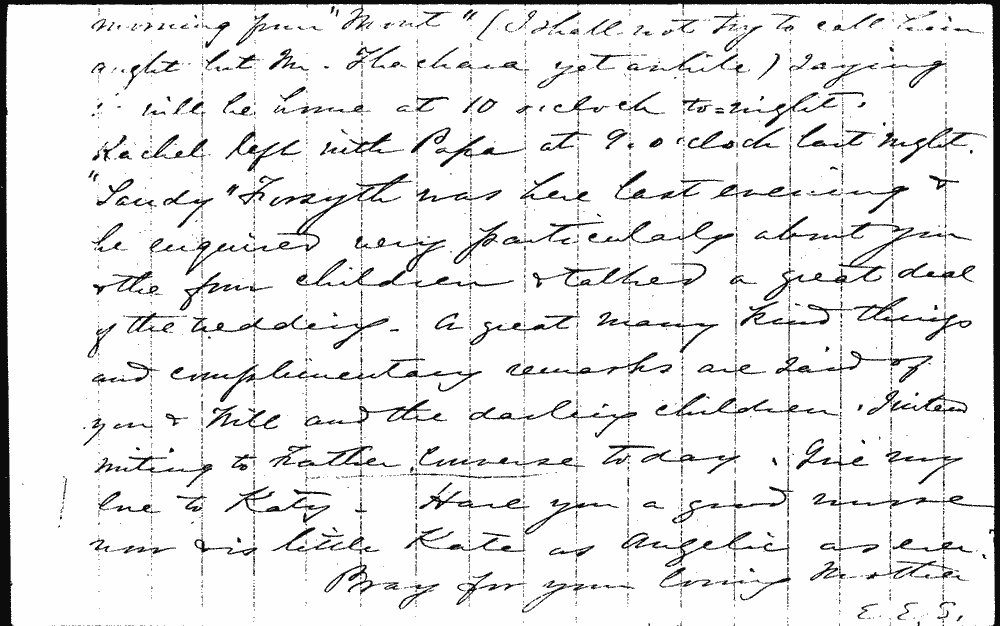 morning from "Mont" (I shall not try to call him
aught but Mr. Thachara yet awhile) saying
will be home at 10 o'clock to=night.
Rachel left with Papa at 9. o'clock last night.
"Sandy" Forsyth was here last evening &
he enquired very particularly about you
& the four children & talked a great deal
of the wedding - A great many kind things
and complimentary remarks are said of
you & Will and the darling children. I intend
writing to Father Converse today. Give my
love to Katy - Have you a good nurse
now & is little Kate as Angelic as ever.
Pray for your loving Mother
E. E. S.